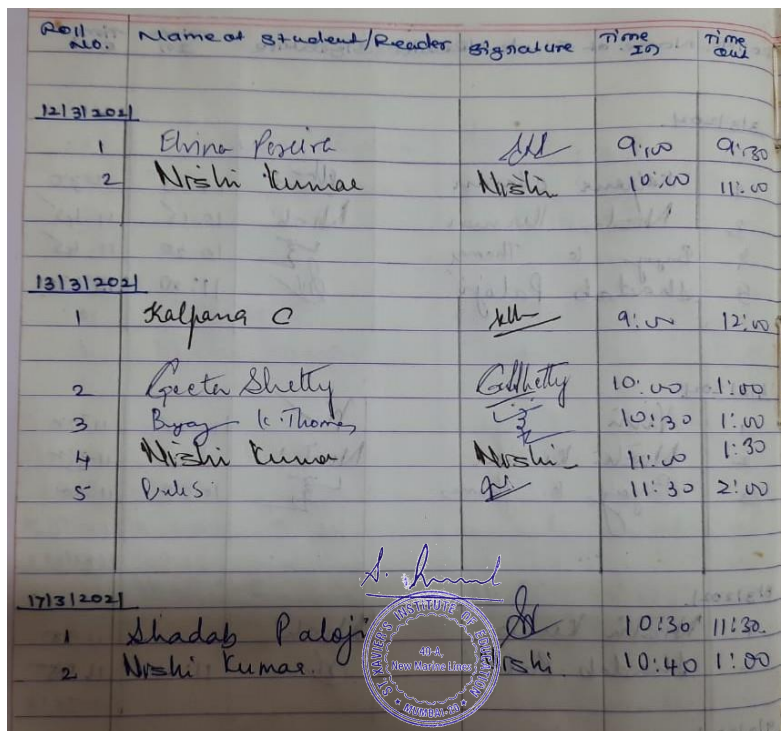 Roll No. Name of Student/Reader Signature Time In Time Out
12/3/2021
1 Elvina Pereira 9:00 9:30
2 Nishi Kumar Nishi 10:00 11:00
13/3/2021
1 Kalpana C 9:00 12:00
2 Geeta Shetty GShetty 10:00 1:00
3 K. Thomas 10:30 1:00
4 Nishi Kumar Nishi 11:00 1:30
5 11:30 2:00
17/3/2021
1 Shadab Paloji 10:30 11:30
2 Nishi Kumar. Nishi. 10:40 1:00
ST. XAVIER'S INSTITUTE OF EDUCATION
40-A,
New Marine Lines
MUMBAI-20